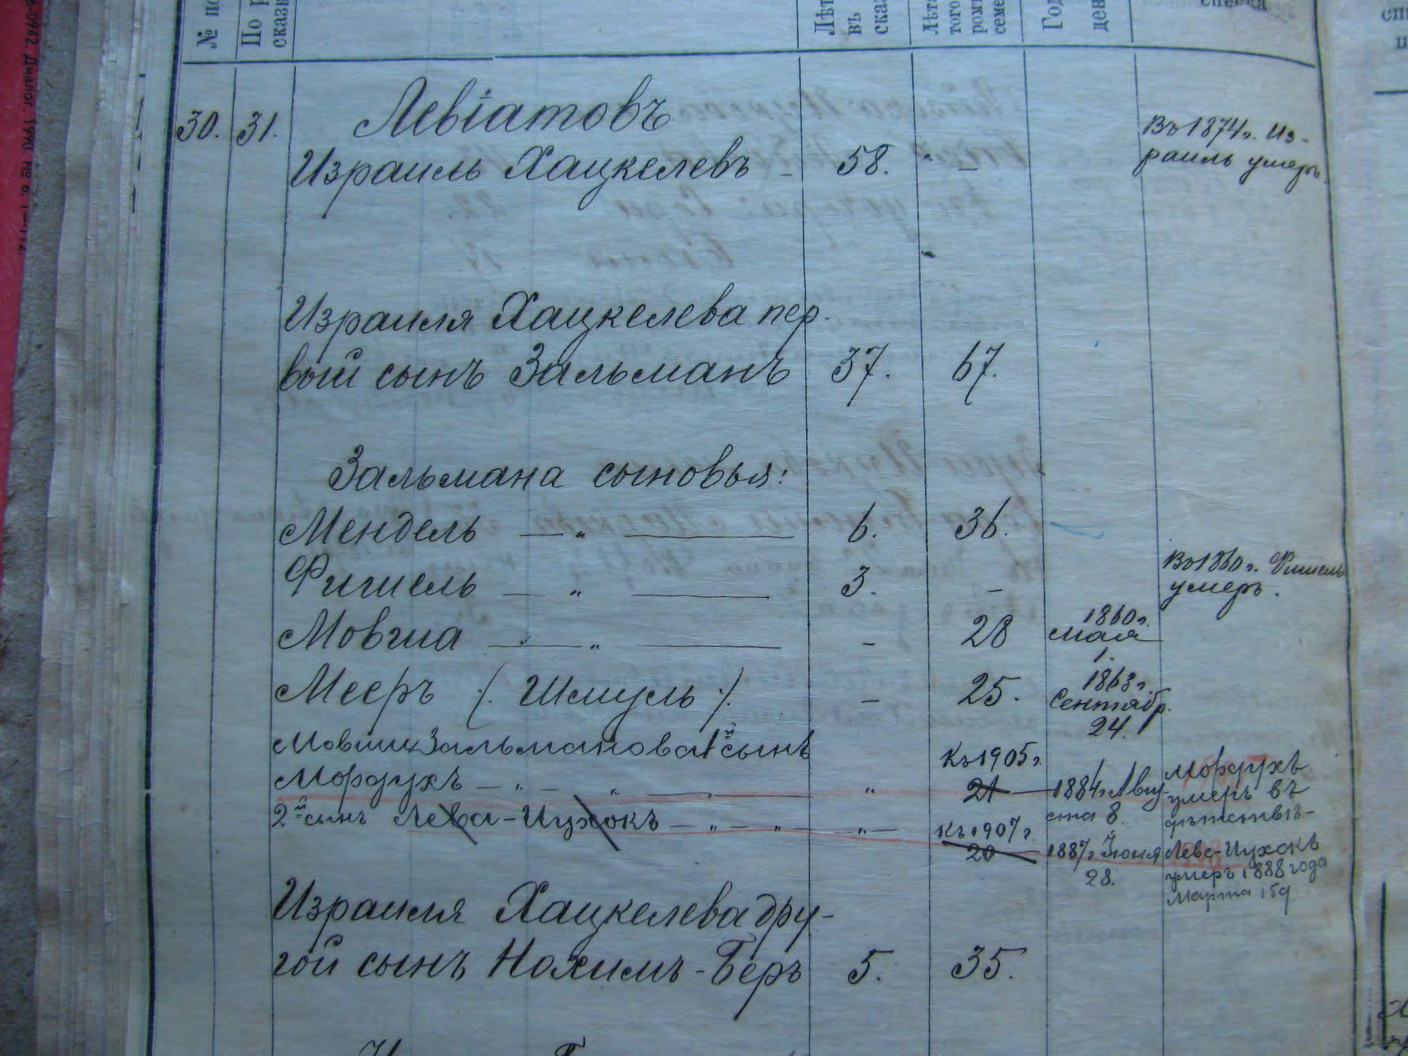 № по
По р
сказк
Лѣт
въ
ска
Лѣта
того
ром
семе
Год
ден
списка
30. 31. Левіатовъ
Израиль Хацкелевъ - 58. - Въ 1874 г. Из-
раиль умеръ
Израиля Хацкелева пер-
вый сынъ Зальманъ 37. 67.
Зальмана сыновья:
Мендель — „ — 6. 36.
Фишель — „ — 3. - Въ 1860 г. Фишель
умеръ.
Мовша — „ — - 28 1860 г.
мая
1.
Мееръ /. Шмуль ./ - 25. 1863 г.
Сентябр.
24.
Мовши Зальманова 1й сынъ Къ 1905 г.
Мордухъ — „ — „ — „ — „ 21 1884 г. Авгу-
ста 8. Мордухъ
умеръ въ
дѣтствѣ-
2й сынъ Лева-Ицхокъ — „ — „ — „ — Къ 1907 г.
20 1887 г. Іюня
28. Левс-Ицхокъ
умеръ 1888 года
Марта 15 д.
Израиля Хацкелева дру-
гой сынъ Нохимъ-Беръ 5. 35.